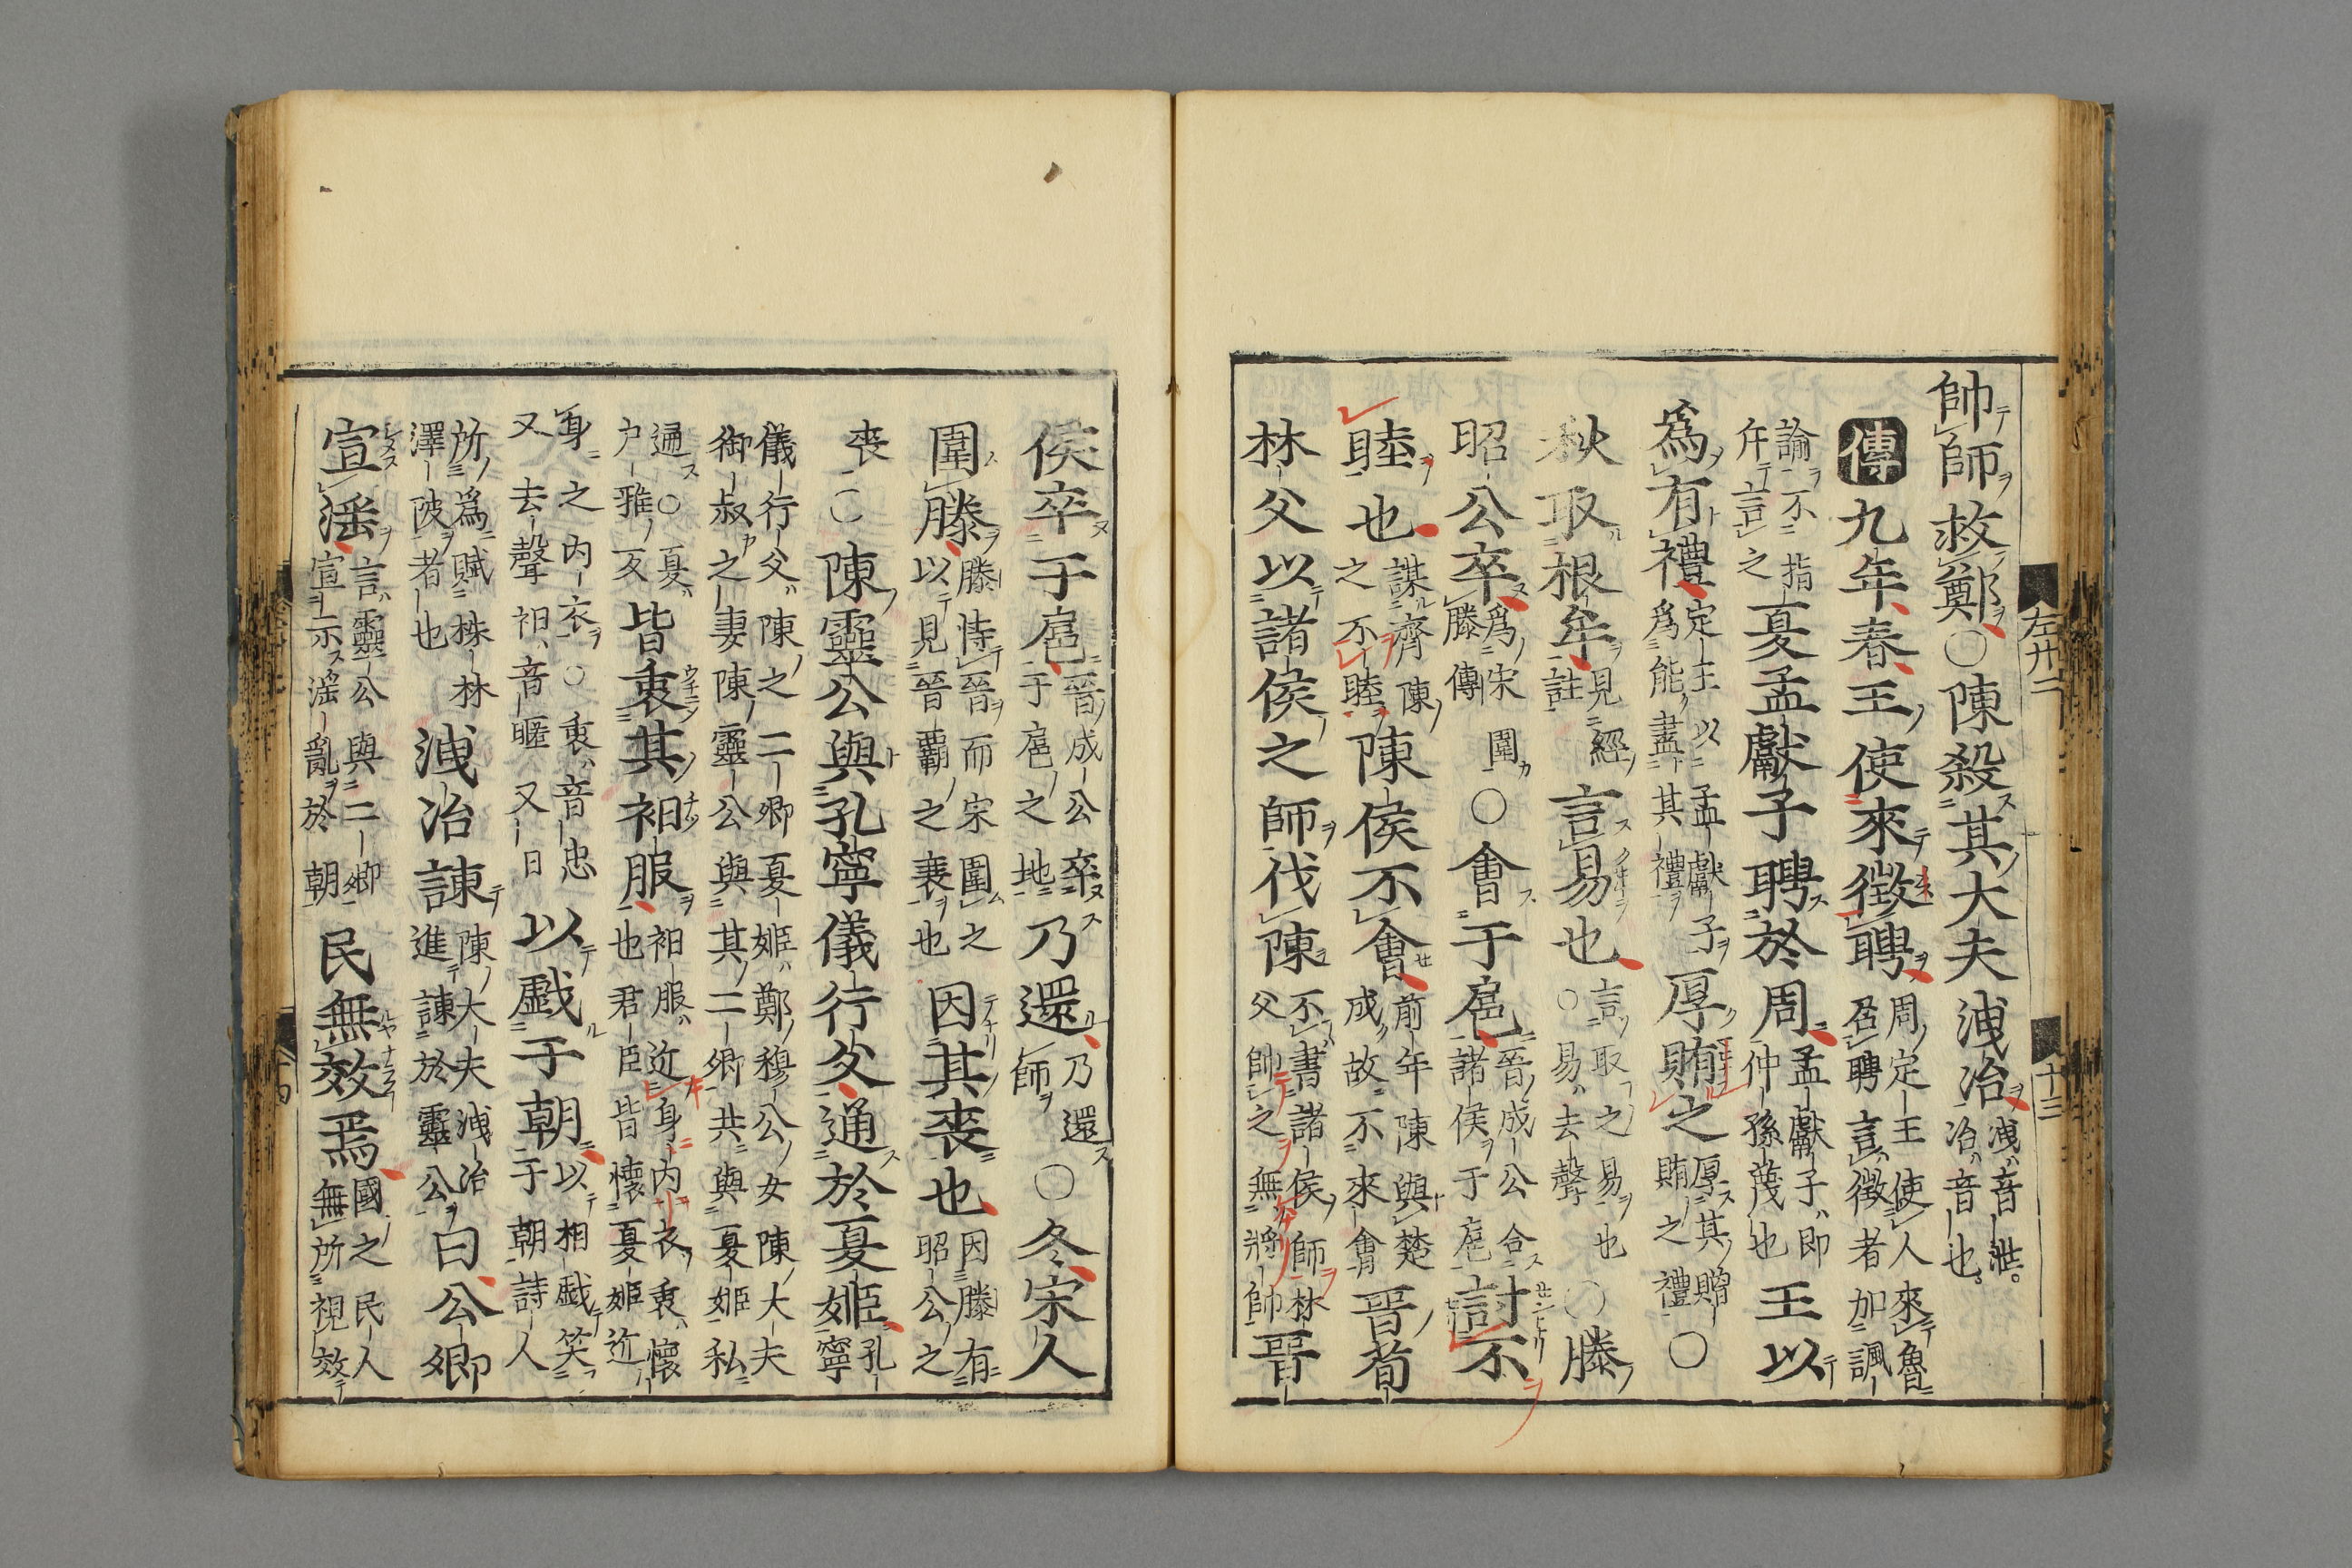 左廿二
十三
帥師救鄭○陳殺其大夫洩冶洩音泄。冶音也。
傳九年春王使來徵聘周定王使人來魯召聘言徵者加諷
諭不指斥言之夏孟獻子聘於周孟獻子即仲孫蔑也王以
爲有禮定王以孟獻子爲能盡其禮厚賄之厚其贈賄之禮○
秋取根牟見經註言易也言取之易也○易去聲○滕
昭公卒爲宋圍滕傳○會于扈晉成公合諸侯于扈討不
睦也謀齊陳之不睦陳侯不會前年陳與楚成故不來會晉荀
林父以諸侯之師伐陳不書諸侯師林父帥之無將帥晉
侯卒于扈晉成公卒于扈之地乃還乃還師○冬宋人
圍滕滕恃晉而宋圍之以見晉霸之衰也因其喪也因滕有昭公之
喪○陳靈公與孔寧儀行父通於夏姬孔寧
儀行父陳之二卿夏姬鄭穆公女陳大夫御叔之妻陳靈公與其二卿共與夏姬私
通○夏戶雅反皆衷其衵服衵服近身内衣衷懷也君臣皆懷夏姬近
身之内衣○衷音忠又去聲衵音暱又日以戲于朝以相戲笑于朝詩人
所爲賦株林澤陂者也洩冶諫陳大夫洩冶進諫於靈公曰公卿
宣淫言靈公與二卿宣示淫亂於朝民無效焉國之民人無所視效